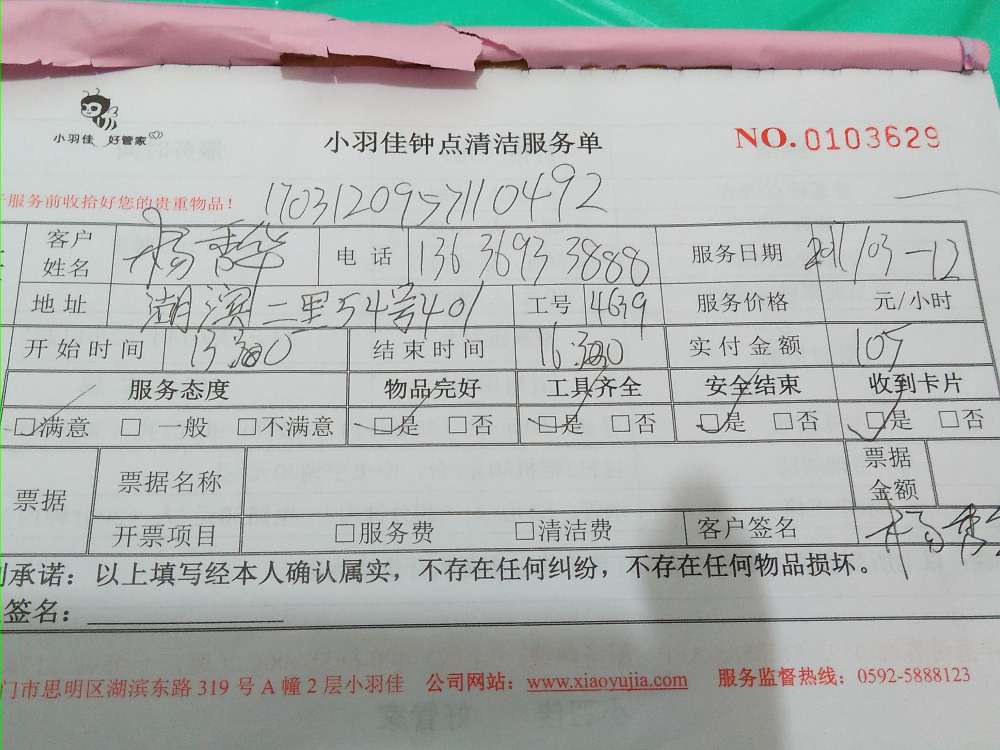 小羽佳 好管家
小羽佳钟点清洁服务单
NO.0103629
服务前收拾好您的贵重物品！
客户姓名 电话 13636933888 服务日期
地址 湖滨二里54号401 工号 4639 服务价格 元/小时
开始时间 结束时间 实付金额 105
服务态度 物品完好 工具齐全 安全结束 收到卡片
□满意 □ 一般 □不满意 □是 □否 □是 □否 □是 □否 □是 □否
票据 票据名称 票据金额
开票项目 □服务费 □清洁费 客户签名
承诺：以上填写经本人确认属实，不存在任何纠纷，不存在任何物品损坏。
签名：
门市思明区湖滨东路 319 号 A 幢 2 层小羽佳 公司网站：www.xiaoyujia.com 服务监督热线：0592-5888123